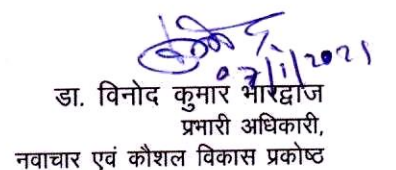 07/1/2021
डा. विनोद कुमार भारद्वाज
प्रभारी अधिकारी,
नवाचार एवं कौशल विकास प्रकोष्ठ